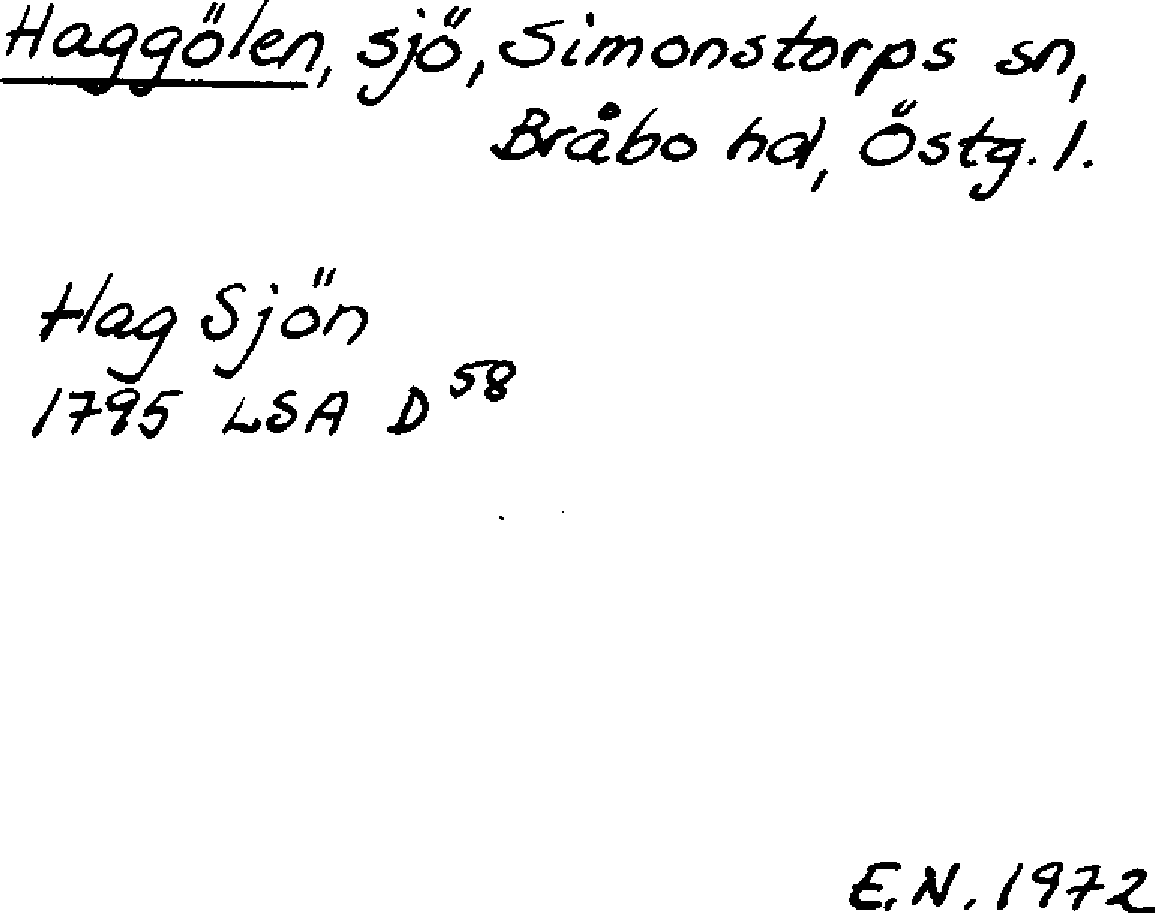 Haggölen, sjö, Simonstorps sn,
Bråbo hd, Östg. l.
Hag Sjön
1795 LSA D 58
E.N. 1972